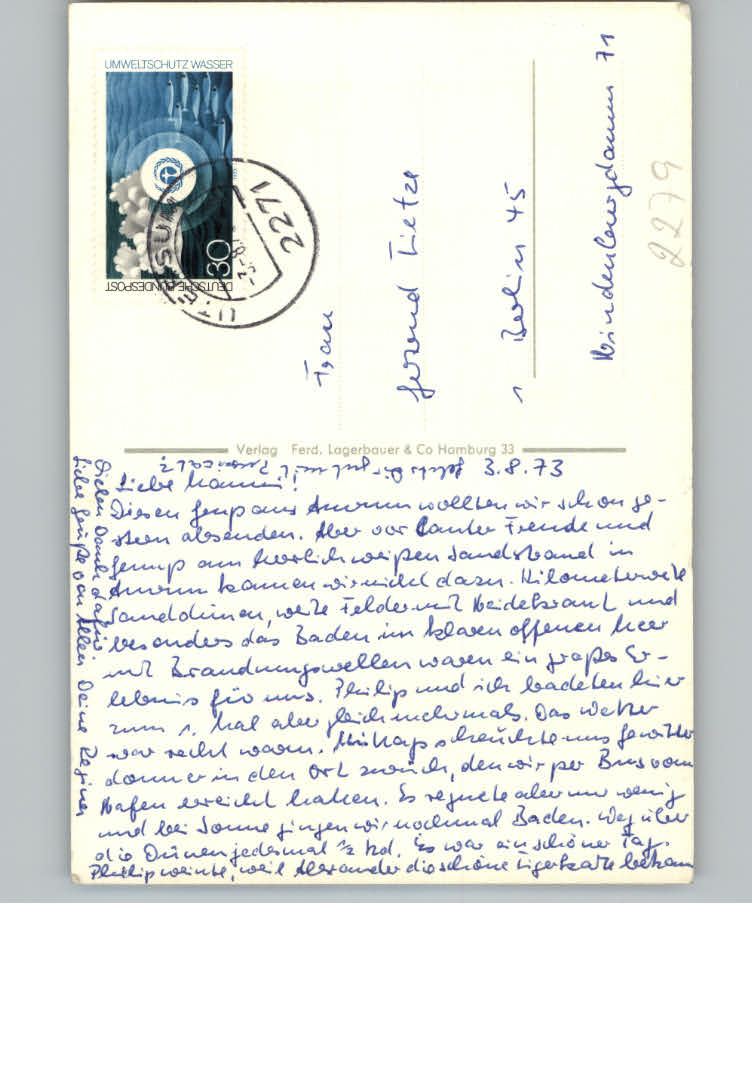 UMWELTSCHUTZ WASSER
30
DEUTSCHE BUNDESPOST
2271
UTERSUM
Frau
Gerhard Tietze
1 Berlin 45
Hindenburgdamm 71
2279
Verlag Ferd. Lagerbauer & Co Hamburg 33
3.8.73
Liebe Mammi!
Diesen Gruß aus Amrum wollten wir schon ge-
stern absenden. Aber vor lauter Freude und
Genuß am herrlich weißen Sandstrand in
Amrum kamen wir nicht dazu. Kilometerweite
Sanddünen, weite Felder mit Heidekraut und
besonders das Baden im klaren offenen Meer
mit Brandungswellen waren ein großes Er-
lebnis für uns. Philip und ich badeten hier
zum 1. Mal aber gleich mehrmals. Das Wetter
war recht warm. Mittags scheuchte uns Gewitter
donner in den Ort zurück, den wir per Bus vom
Hafen erreicht haben. Es regnete aber nur wenig
und bei Sonne gingen wir nochmal Baden. Weg über
die Dünen jedesmal ½ Std. Es war ein schöner Tag.
Philip weinte, weil Alexander die schöne Tigerkarte bekam
Vielen Dank dafür.
Liebe Grüße von Allen Deine Regine